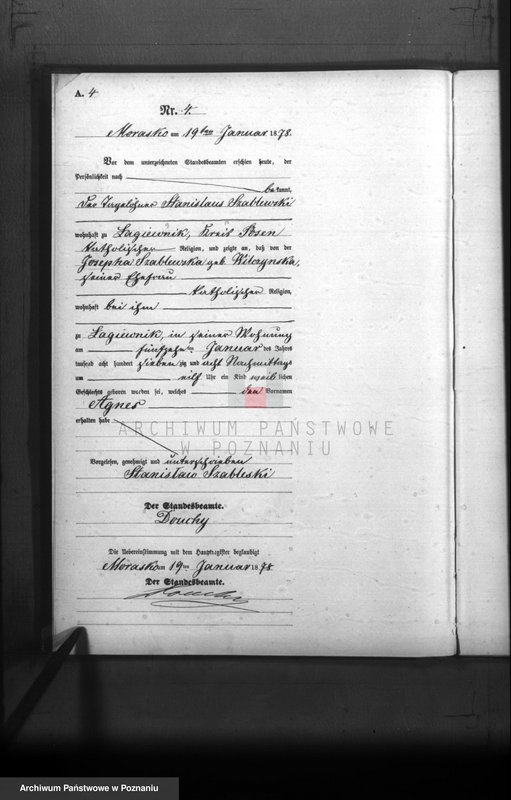 A. 4
Nr. 4.
Morasko am 19ten Januar 1878.
Vor dem unterzeichneten Standesbeamten erschien heute, der
Persönlichkeit nach
bekannt,
der Tagelöhner Stanislaus Szablewski
wohnhaft zu Łagiewnik, Kreis Posen
katholischer Religion, und zeigte an, daß von der
Josepha Szablewska geb. Wilczynska,
seiner Ehefrau
katholischer Religion,
wohnhaft bei ihm
zu Łagiewnik, in seiner Wohnung
am fünfzehnten Januar des Jahres
tausend acht hundert siebenzig und acht Nachmittags
um elf Uhr ein Kind weiblichen
Geschlechts geboren worden sei, welches den Vornamen
Agnes
erhalten habe
Vorgelesen, genehmigt und unterschrieben
Stanisław Szableski
Der Standesbeamte.
Douchy
Die Uebereinstimmung mit dem Hauptregister beglaubigt
Morasko am 19ten Januar 1878
Der Standesbeamte.
Douchy
ARCHIWUM PAŃSTWOWE
W POZNANIU
Archiwum Państwowe w Poznaniu